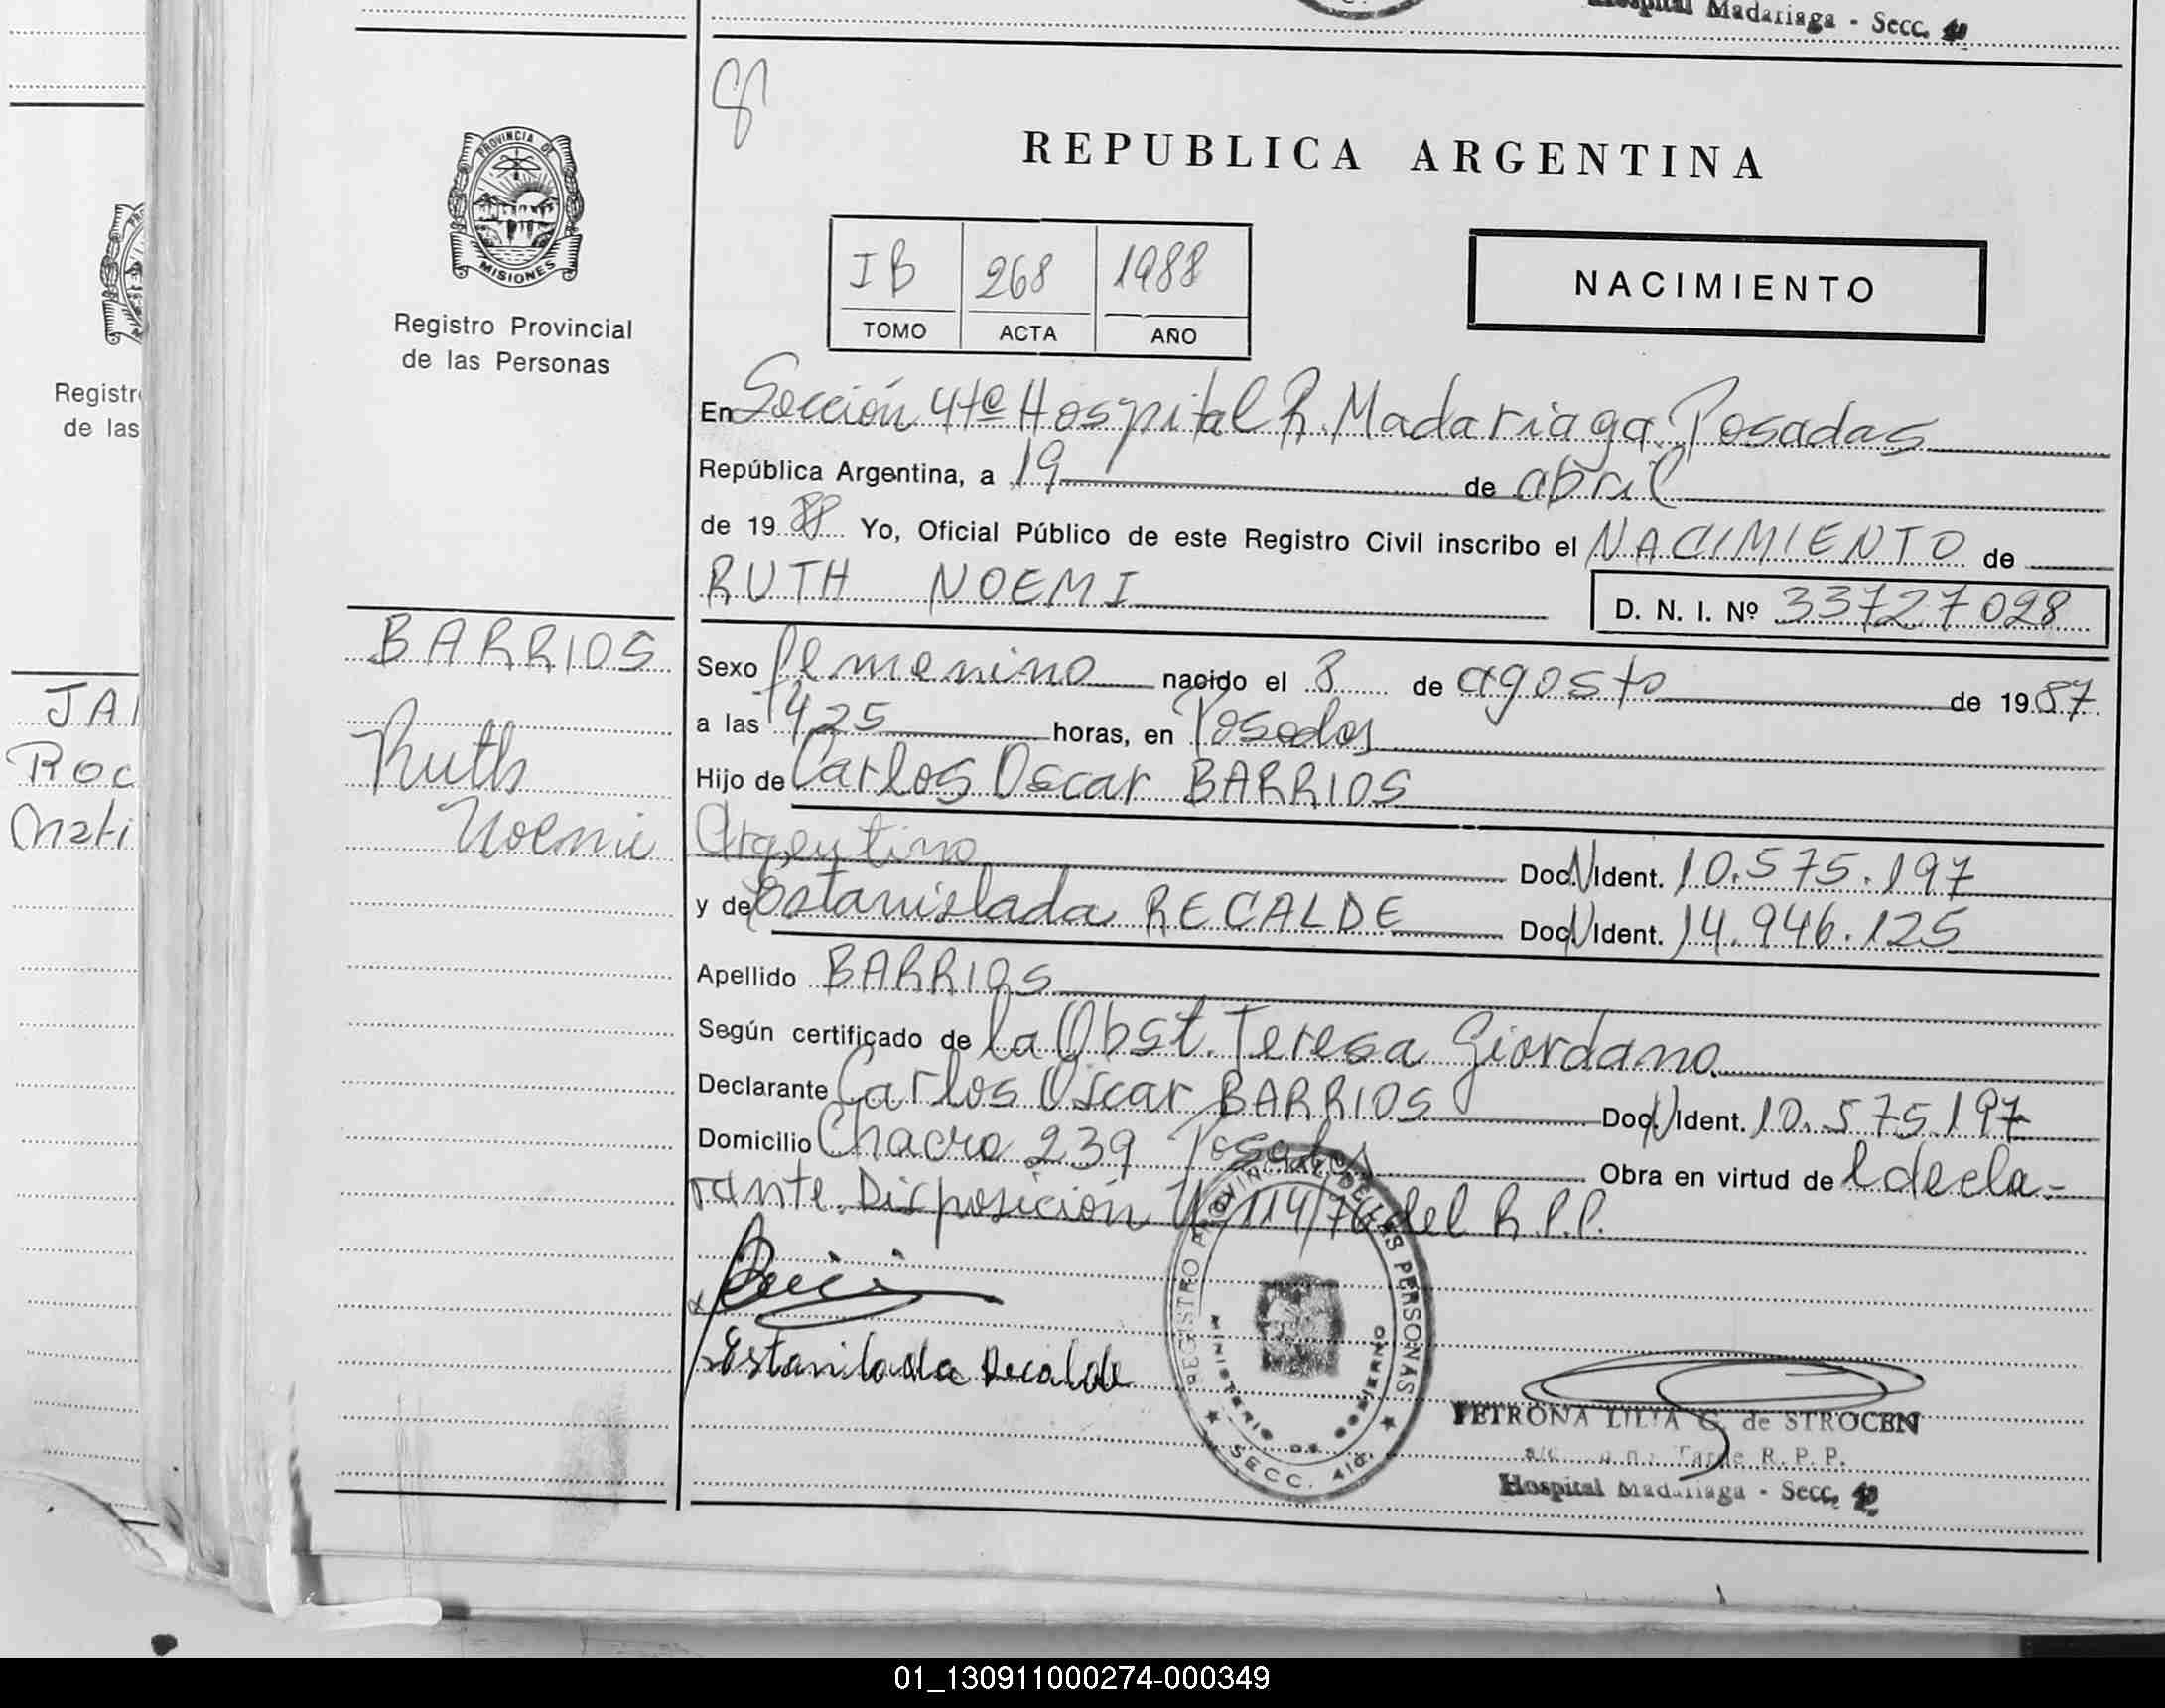 Hospital Madariaga - Secc. 4
8
PROVINCIA DE
MISIONES
Registro Provincial
de las Personas
REPUBLICA ARGENTINA
IB 268 1988
TOMO ACTA AÑO
NACIMIENTO
En Sección 4ta Hospital R. Madariaga. Posadas
República Argentina, a 19 de abril
de 1988 Yo, Oficial Público de este Registro Civil inscribo el NACIMIENTO de
RUTH NOEMI
D. N. I. Nº 33727028
BARRIOS
Ruth
Noemi
Sexo femenino nacido el 8 de agosto de 1987
a las 1425 horas, en Posadas
Hijo de Carlos Oscar BARRIOS
Argentino Doc.N Ident. 10.575.197
y de Estanislada RECALDE Doc.N Ident. 14.946.125
Apellido BARRIOS
Según certificado de la Obst. Teresa Giordano
Declarante Carlos Oscar BARRIOS Doc.N Ident. 10.575197
Domicilio Chacra 239 Posadas Obra en virtud de l decla-
rante. Disposición Nº 114/76 del R.P.P.
Estanilada Recalde
REGISTRO PROVINCIAL DE LAS PERSONAS
MINISTERIO DE GOBIERNO
SECC. 4ta.
PETRONA LILIA G. de STROCEN
a/c Tarde R. P. P.
Hospital Madariaga - Secc. 4
Registr
de las
JA
Roc
Mati
01_130911000274-000349